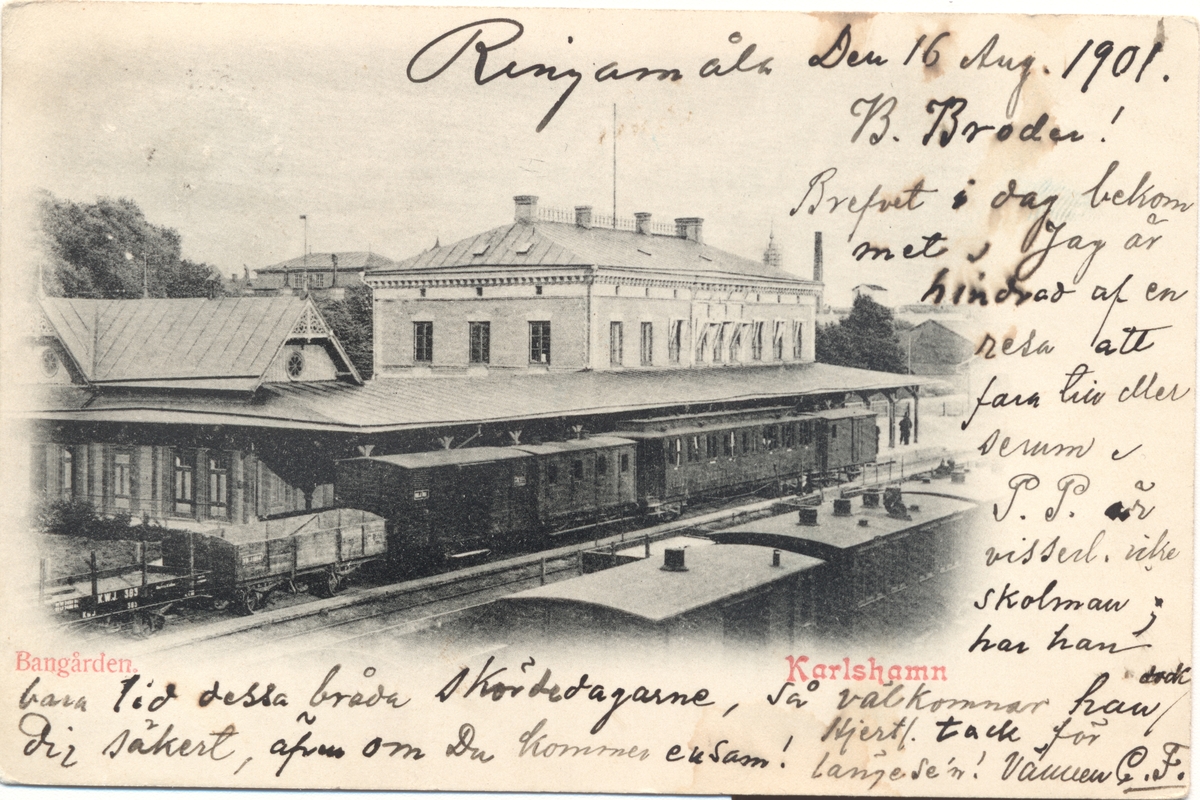 Ringamåla Den 16 Aug. 1901.
B. Broder!
Brefvet i dag bekom
met, Jag är
hindrad af en
resa att
fara till eller
P. P. är
visserl. icke
skolman;
har han
bara tid dessa bråda skördedagarne, så välkomnar han dock
Dig säkert, äfven om Du kommer ensam! Hjertl. tack för
långesen! Vännen C. F.
Bangården.
Karlshamn
KWJ 383
383